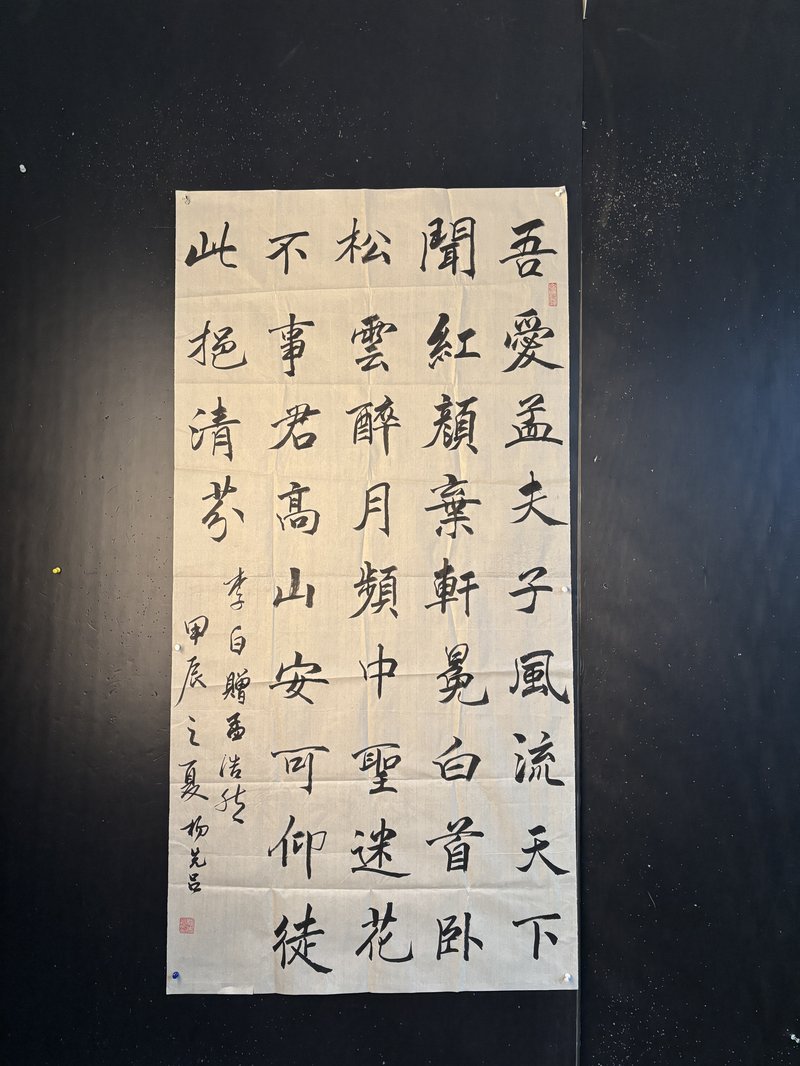 吾愛孟夫子風流天下
聞紅顏棄軒冕白首臥
松雲醉月頻中聖迷花
不事君高山安可仰徒
此挹清芬
李白贈孟浩然
甲辰之夏楊先呂